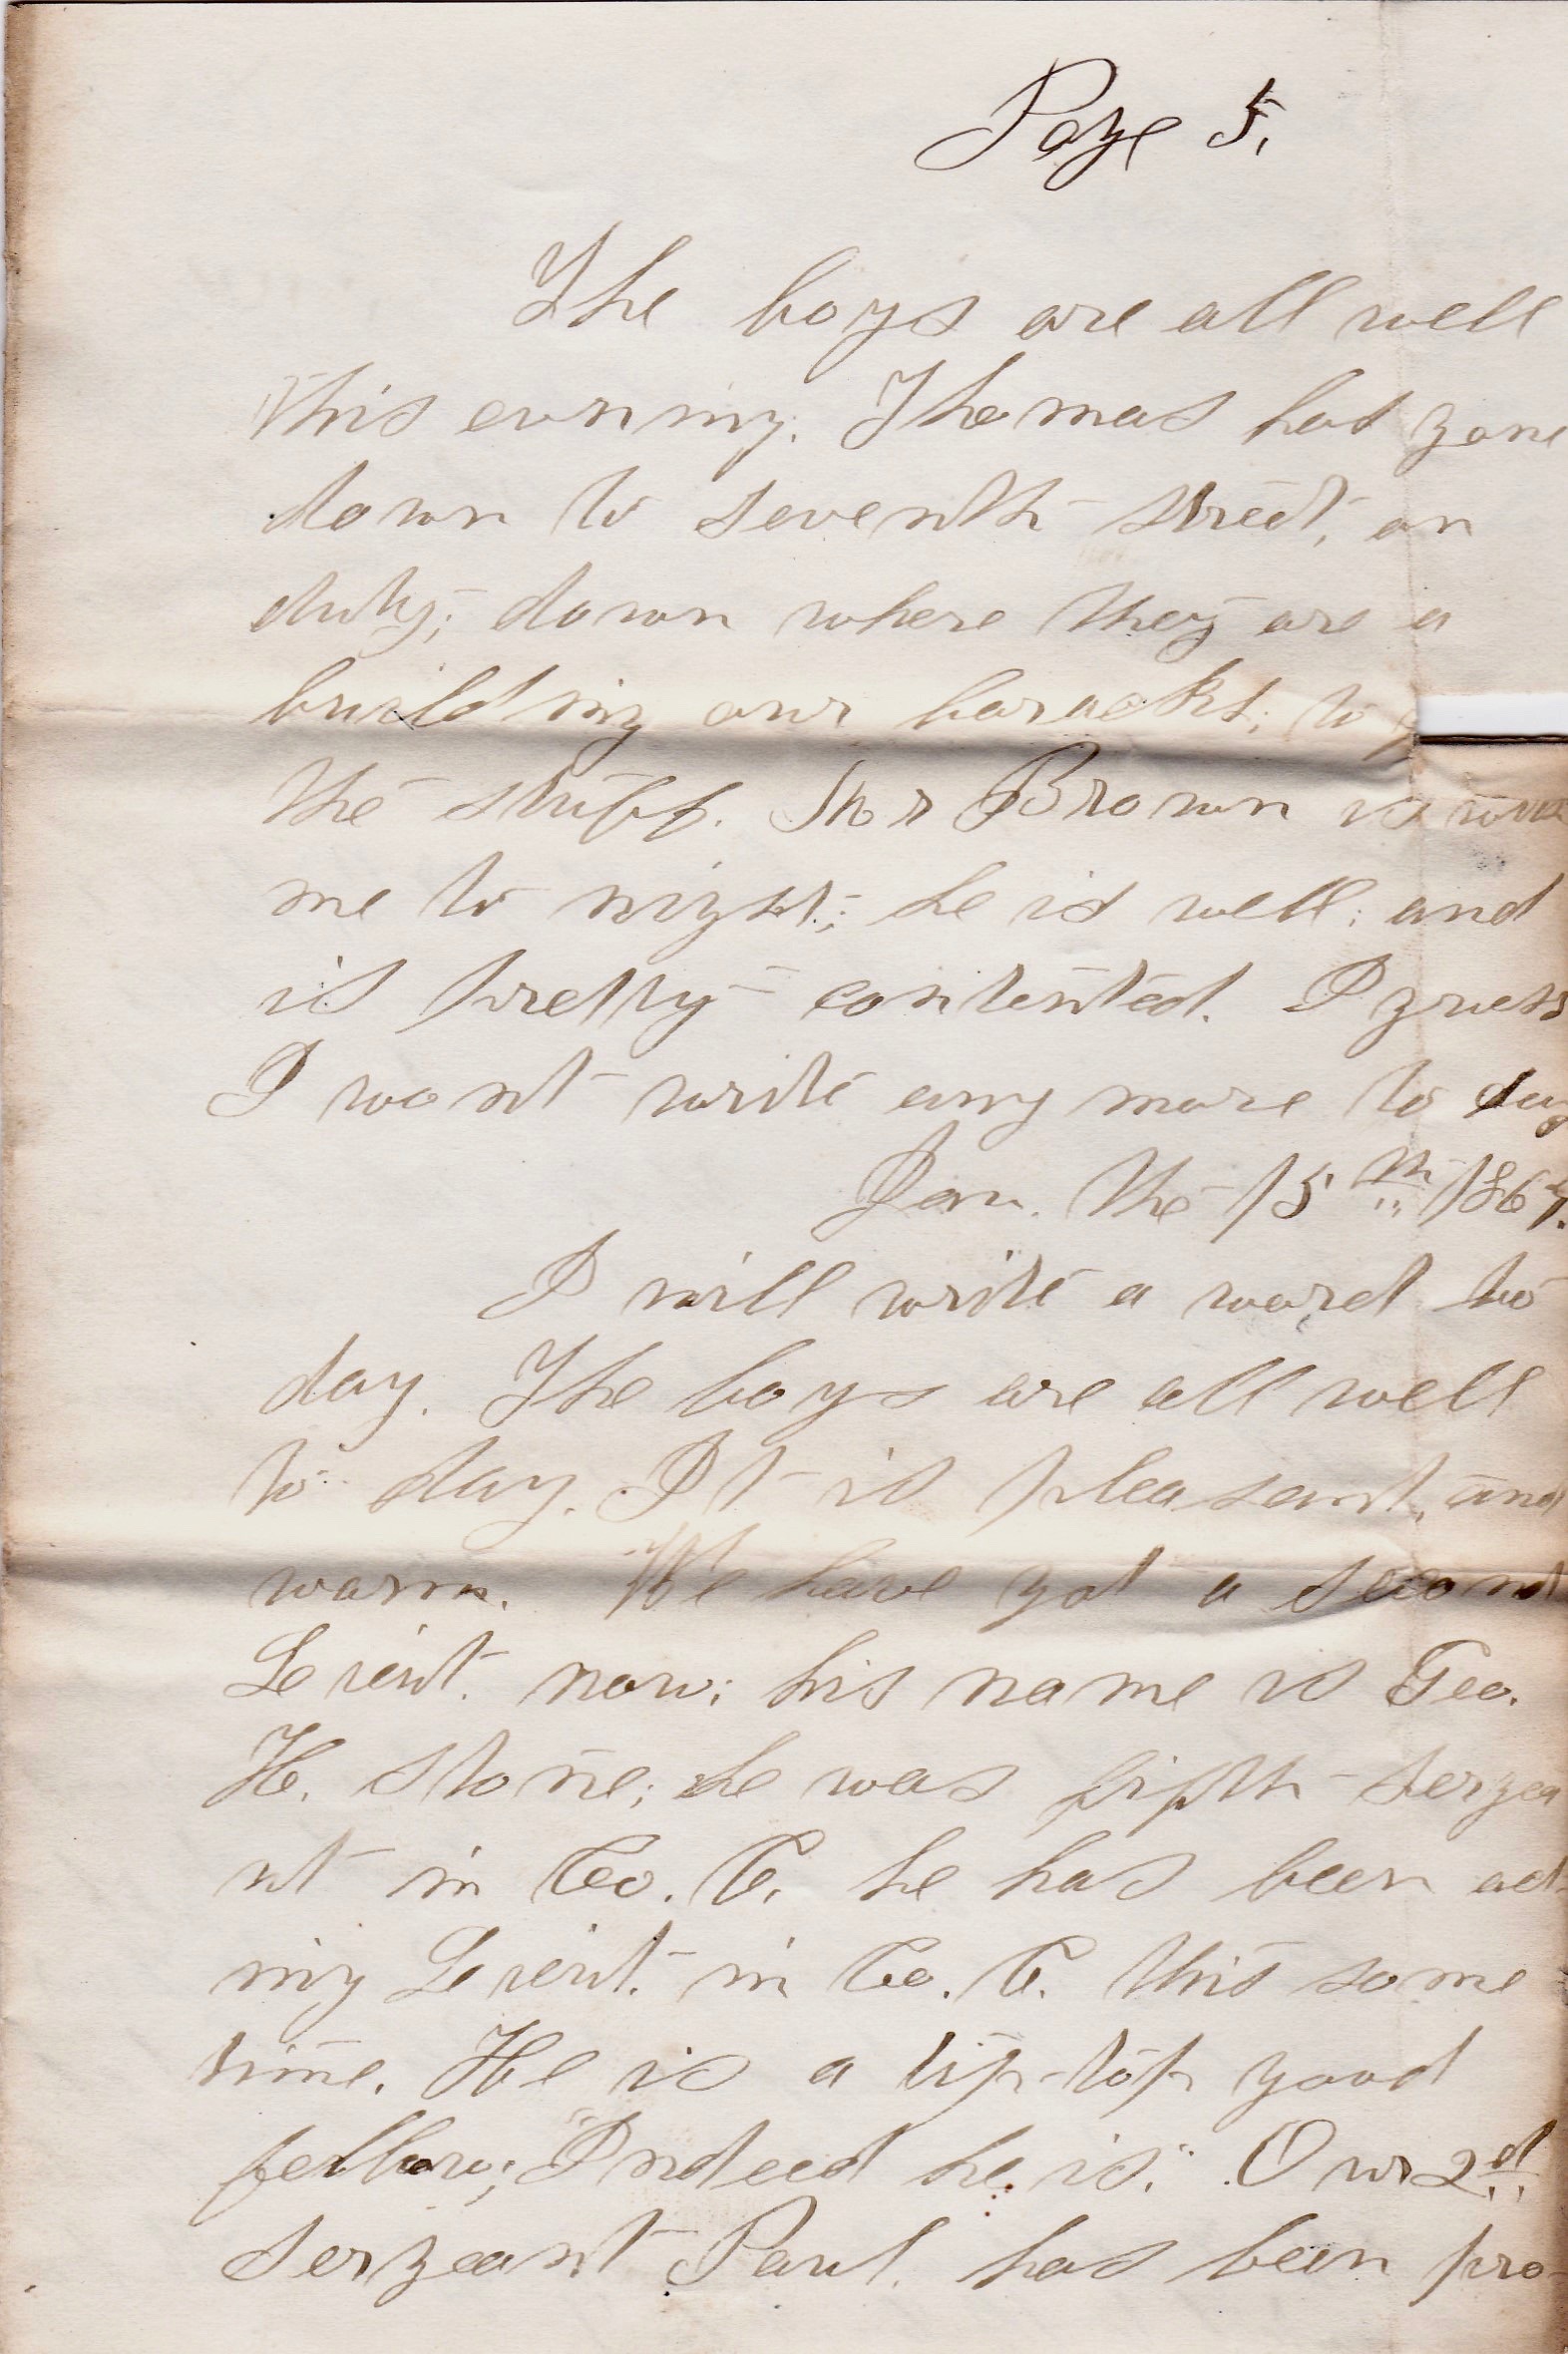 Page 5.
The boys are all well
this evening. Thomas has gone
down to seventh street, on
duty; down where they are a
building our baracks; to
the stuff. Mr Brown is
me to night; he is well; and
is pretty contented. I guess
I wont write any more to day
Jan. the 15th 1867.
I will write a word to
day. The boys are all well
to day. It is pleasant, and
warm. We have got a second
Leieut. now; his name is Geo.
H. Stone; he was fifth sergea
nt in Co. C. he has been act-
ing Leieut. in Co. C. this some
time. He is a tip-top good
fellow; "Indeed he is." Our 2d.
sergeant Paul. has been pro-